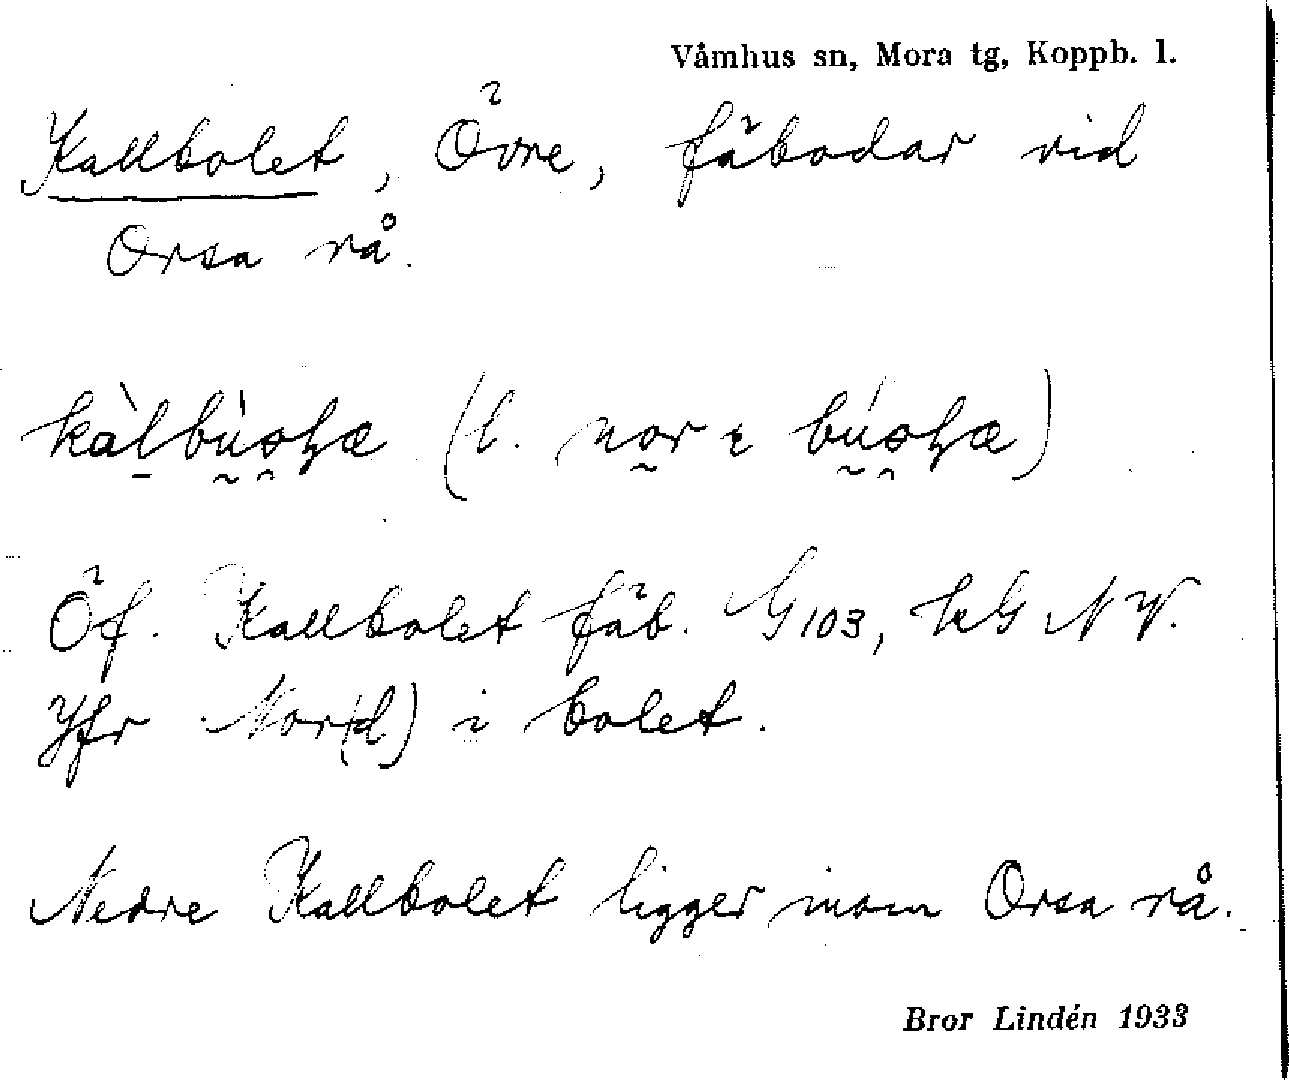 Våmhus sn, Mora tg, Koppb. l.
Kallbolet, Övre, fäbodar vid
Orsa rå.
(l. nor
Öf. Kallbolet fäb. G103, kG NV.
Jfr Nor(d) i bolet.
Nedre Kallbolet ligger inom Orsa rå.
Bror Lindén 1933